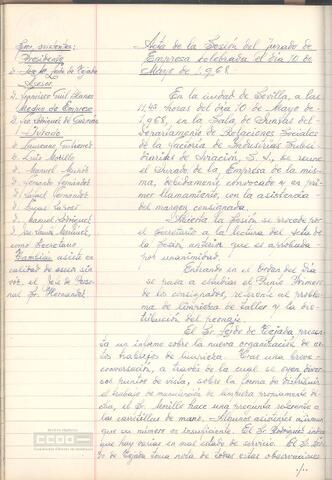 Sres. asistentes:
Presidente
D. José Mª Leído de Tejada
Asesor
D. Francisco Gual Blanco
Médico de Empresa
D. Leo Rodríguez de Guzmán
Jurado
D. Laureano Gutiérrez
D. Luis Morillo
D. Manuel Muñoz
D. Fernando Fernández
D. Rafael Fernández
D. Eugenio
D. Manuel Rodríguez
D. José Luis Martínez,
como Secretario
También asiste en
calidad de asesor sin
voz, el Jefe de Perso-
nal Sr. Hernández
Acta de la Sesión del Jurado de
Empresa celebrada el día 10 de
Mayo de 1.968
En la ciudad de Sevilla, a las
11,45 horas del día 10 de Mayo de
1.968, en la Sala de Juntas del
departamento de Relaciones Sociales
de la factoría de Industrias Subsi-
diarias de Aviación, S.A., se reúne
el Jurado de la Empresa de la mis-
ma, debidamente convocado y en pri-
mer llamamiento, con la asistencia
del margen consignada.
Abierta la Sesión, se procede por
el Secretario a la lectura del Acta de
la Sesión anterior que es aprobada
por unanimidad.
Entrando en el Orden del Día
se pasa a estudiar el Punto Primero
de los consignados, referente al proble-
ma de limpieza de taller y la dis-
tribución del personal.
El Sr. Leído de Tejada presen-
ta un informe sobre la nueva organización de es-
tos trabajos de limpieza. Tras una breve
conversación, a través de la cual se oyen diver-
sos puntos de vista, sobre la forma de distribuir
el trabajo de manutención de limpieza propiamente di-
cha, el Sr. Morillo hace una pregunta referente a
las carretillas de mano. Algunos asistentes afirman
que su número es insuficiente. El Sr. Rodríguez indica
que hay varias en mal estado de servicio. El Sr. Leí-
do de Tejada toma nota de todas estas observaciones
./..
CCOO